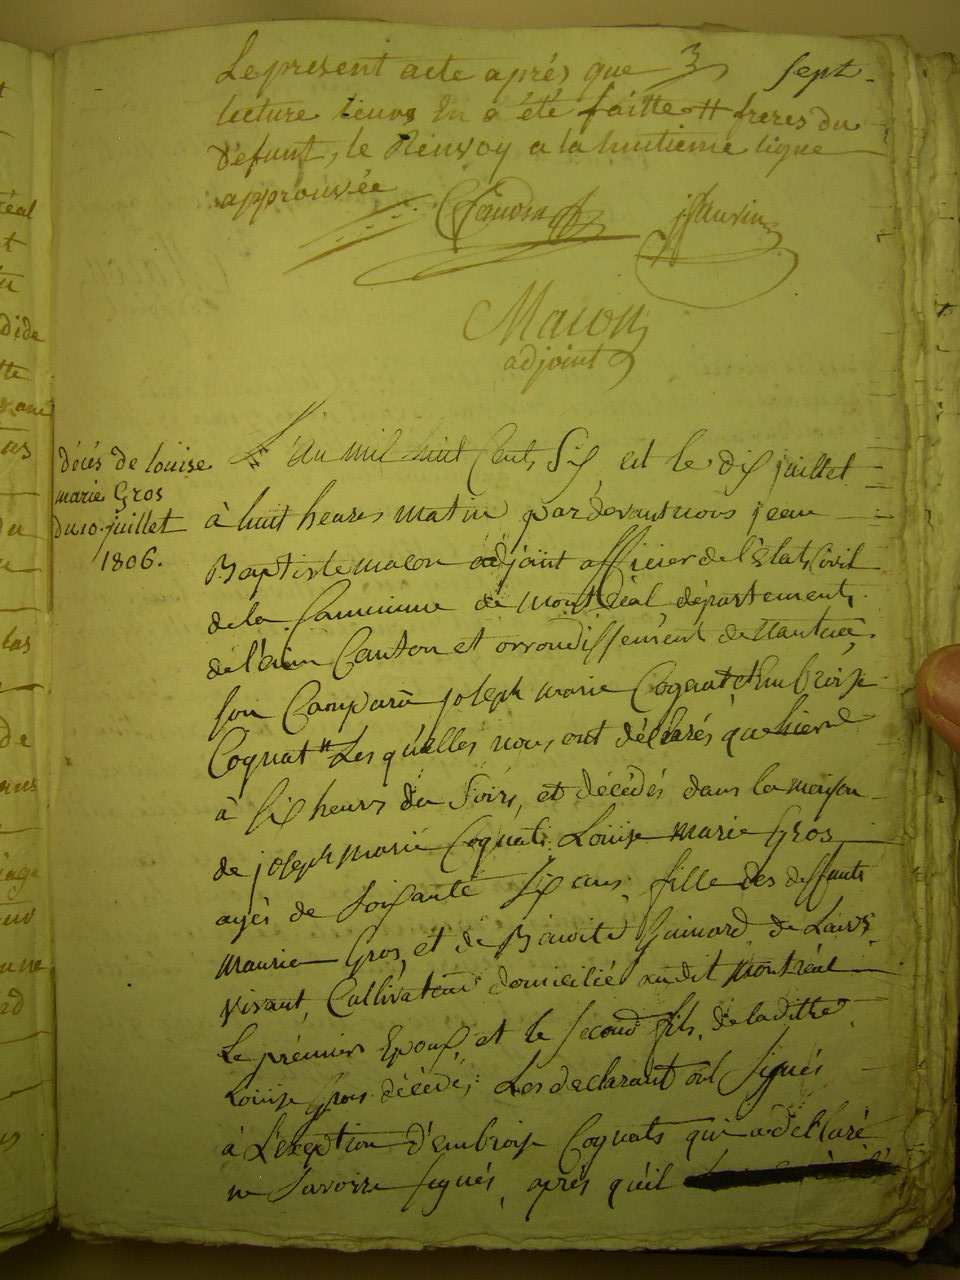 Le present acte après que 3 sept
lecture leurs En a été faitte # freres du
Défunt, le Renvoy a la huitieme ligne
approuvée
Macon
adjoint
décés de louise
marie Gros
du 10 juillet
1806.
L'an mil huit Cent Six est le dix juillet
à huit heures matin pardevant nous jean
Baptiste macon adjoint officier de l'Etat Civil
de la Commune de montréal département
de l'ain Canton et arrondissement de Nantua,
son Comparu joseph marie Cognat et Embroise
Cognat # Lesquelles nous ont déclarés que hier
à Six heurs du Soirs, et décédés dans la maison
de joseph marie Cognat, Louise marie Gros
agés de Soixante Six ans, fille des deffunts
maurie Gros, et de Benoite Guinard, de Leurs
vivant, Cultivateur domicilié audit montréal
Le premier Epoux, et le second fils, de la ditte
Louise Gros décédé, Les declarant ont Signés
à L'exeption d'embroise Cognats qui a déclaré
ne Savoire Signés, après qu'il